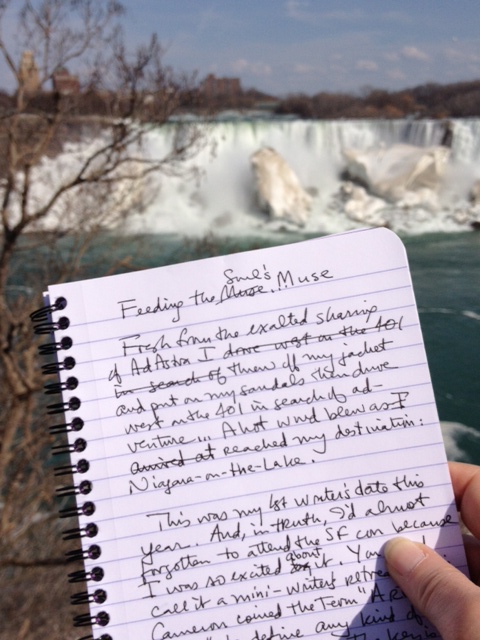 Feeding the Muse. Soul's Muse
Fresh from the exalted sharing
of AdAstra I drove west on the 401
in search of threw off my jacket
and put on my sandals then drove
west on the 401 in search of ad-
venture... A hot wind blew as I
arrived at reached my destination:
Niagara-on-the-Lake.
This was my 1st writer's date this
year. And, in truth, I'd almost
forgotten to attend the SF con because
I was so excited about it. You
call it a mini-writer's retrea
Cameron coined the Term "Ar
define any kind of